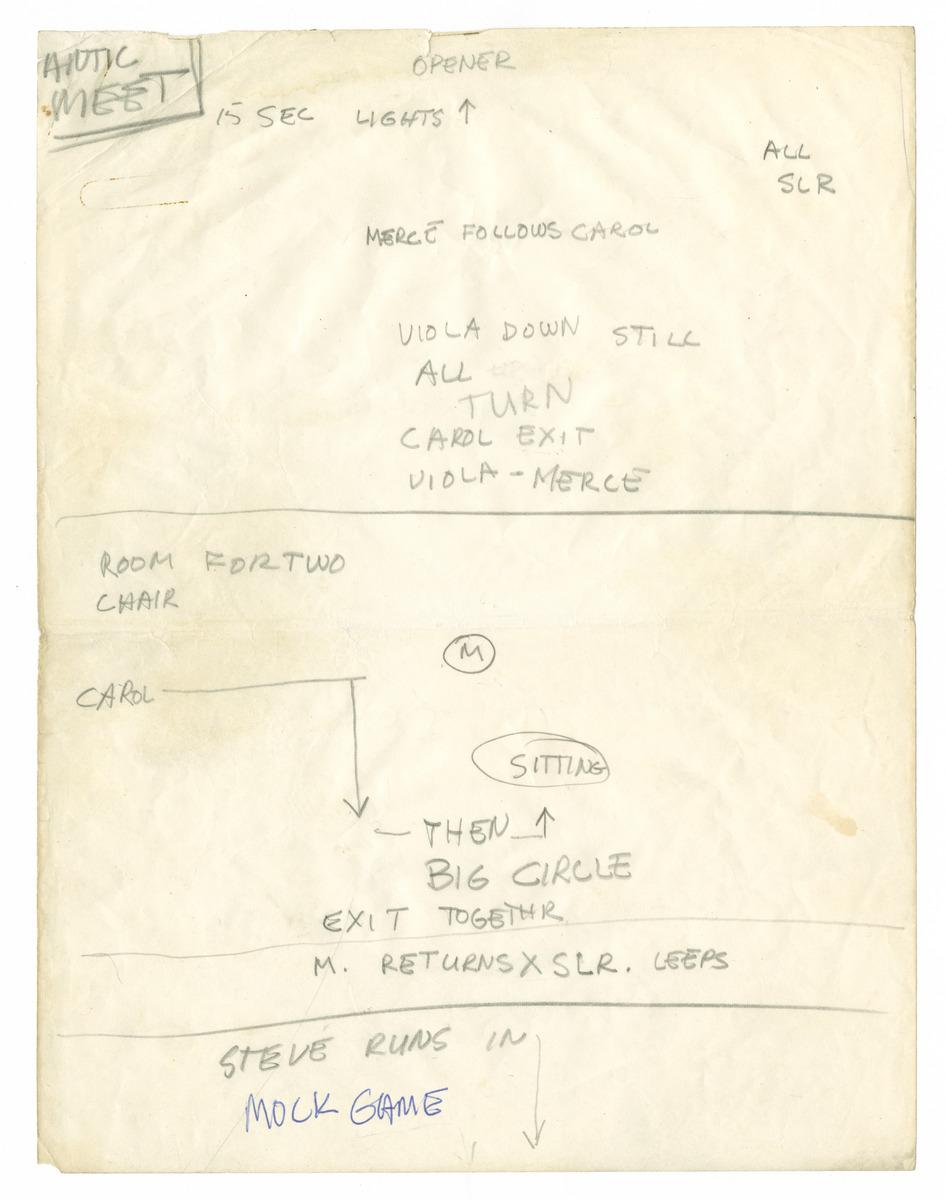 ANTIC
MEET
OPENER
15 SEC LIGHTS ↑
ALL
SLR
MERCE FOLLOWS CAROL
VIOLA DOWN STILL
ALL
TURN
CAROL EXIT
VIOLA - MERCE
ROOM FOR TWO
CHAIR
M
CAROL
SITTING
— THEN ↑
BIG CIRCLE
EXIT TOGETHR
M. RETURNS X SLR. LEEPS
STEVE RUNS IN
MOCK GAME